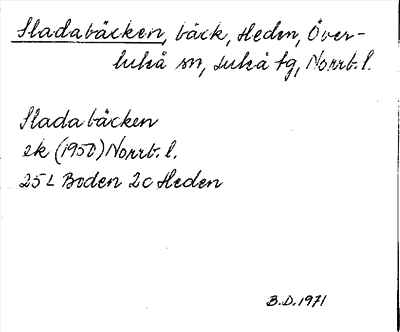 Sladabäcken, bäck, Heden, Över-
luleå sn, Luleå tg, Norrb. l.
Sladabäcken
ek (1950) Norrb. l.
25 L Boden 2c Heden
B.D. 1971